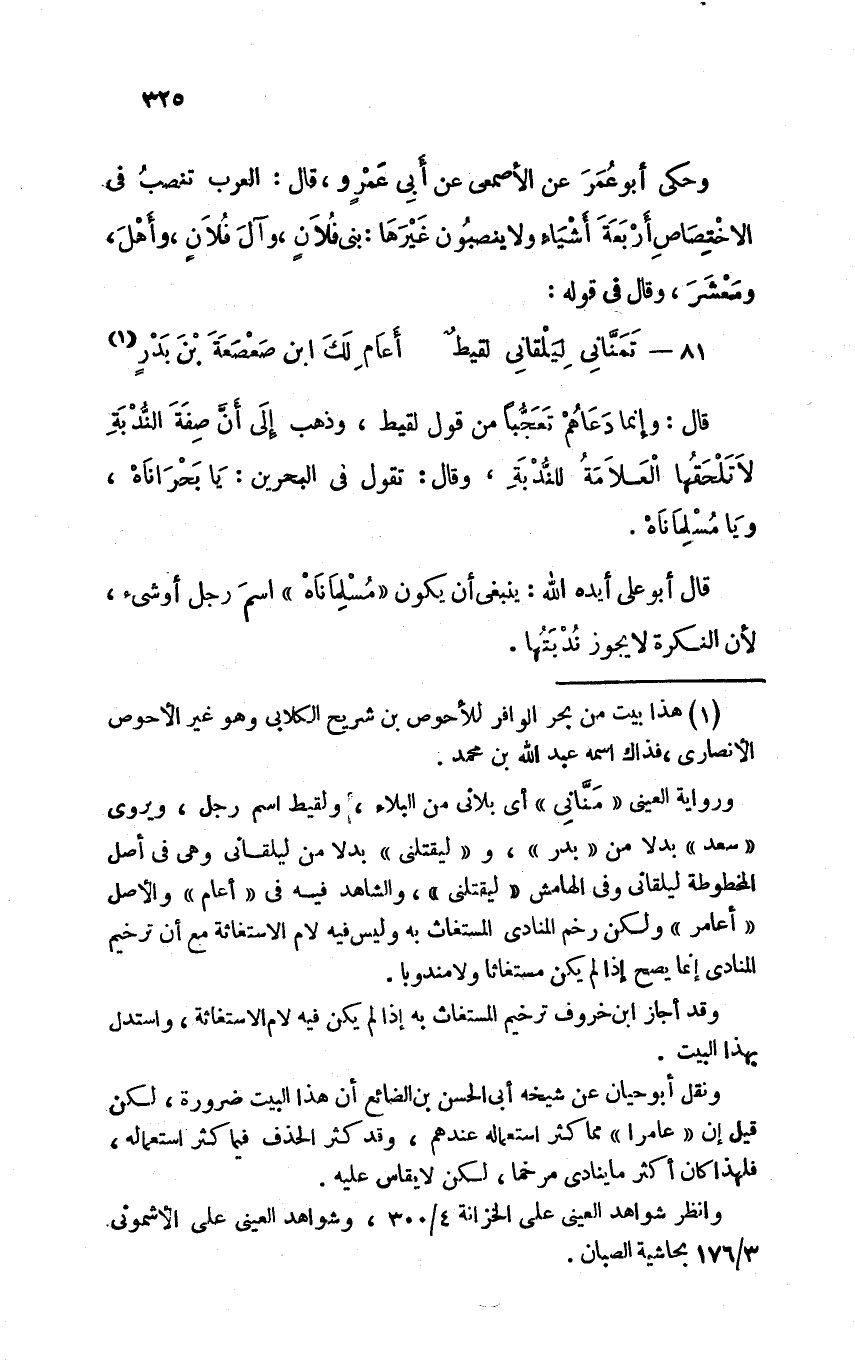 ٣٢٥
وحكى أبو عُمَرَ عن الأصمعى عن أَبِى عَمْرٍو ، قال : العرب تنصبُ فى
الاخْتِصَاصِ أَرْبَعَةَ أَشْيَاء ولا ينصبُون غَيْرَهَا : بنى فُلاَنٍ ، وآلَ فُلاَنٍ ، وأَهْلَ ،
ومَعْشَرَ ، وقال فى قوله :
٨١ — تَمَنَّانِى لِيَلْقانِى لقيطٌ أَعَامِ لَكَ ابن صَعْصَعَةَ بْنَ بَدْرٍ (١)
قال : وإنما دَعَاهُمْ تَعَجُّباً من قول لقيط ، وذهب إِلَى أَنَّ صِفَةَ النُّدْبَةِ
لاَ تَلْحَقُها الْعَـلاَمَةُ للنُّدْبَةِ ، وقال : تقول فى البحرين : يَا بَحْرَانَاهْ ،
ويَا مُسْلِمَانَاهْ .
قال أبو على أيده الله : ينبغى أن يكون « مُسْلِمَانَاهْ » اسمَ رجل أو شىء ،
لأن النـكرة لا يجوز نُدْبَتُها .
(١) هذا بيت من بحر الوافر للأحوص بن شريح الكلابى وهو غير الأحوص
الأنصارى ، فذاك اسمه عبد الله بن محمد .
ورواية العينى « مَنَّانِى » أى بلانى من البلاء ، ولقيط اسم رجل ، ويروى
« سعد » بدلا من « بدر » ، و « ليقتلنى » بدلا من ليلقـانى وهى فى أصل
المخطوطة ليلقانى وفى الهامش « ليقتلنى » ، والشاهد فيـه فى « أعام » والأصل
« أعامر » ولـكن رخم المنادى المستغاث به وليس فيه لام الاستغاثة مع أن ترخيم
المنادى إنما يصح إذا لم يكن مستغاثا ولا مندوبا .
وقد أجاز ابن خروف ترخيم المستغاث به إذا لم يكن فيه لام الاستغاثة ، واستدل
بهذا البيت .
ونقل أبو حيان عن شيخه أبى الحسن بن الضائع أن هذا البيت ضرورة ، لـكن
قيل إن « عامرا » مما كثر استعماله عندهم ، وقد كثر الحذف فيما كثر استعماله ،
فلهذا كان أكثر ما ينادى مرخما ، لـكن لا يقاس عليه .
وانظر شواهد العينى على الخزانة ٣٠٠/٤ ، وشواهد العينى على الأشمونى
١٧٦/٣ بحاشية الصبان .